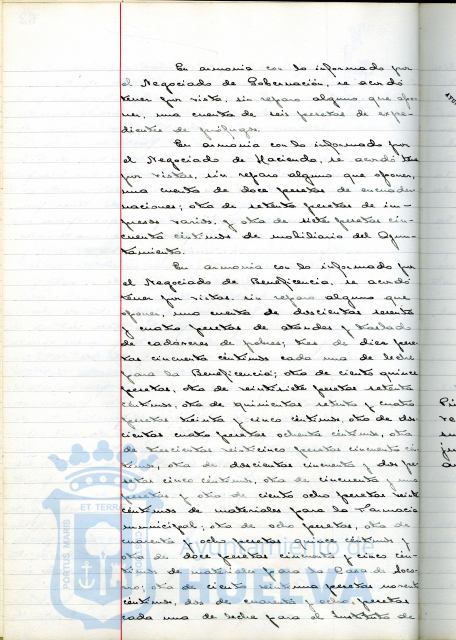 En armonia con lo informado por
el Negociado de Gobernación, se acordó
tener por vista, sin reparo alguno que opo-
ner, una cuenta de seis pesetas de expe-
dientes de prófugos.
En armonia con lo informado por
el Negociado de Hacienda, se acordó
por vistas, sin reparo alguno que oponer,
una cuenta de doce pesetas de encuader-
naciones; otra de setenta pesetas de im-
presos varios, y otra de siete pesetas cin-
cuenta céntimos de mobiliario del Ayun-
tamiento.
En armonia con lo informado por
el Negociado de Beneficencia, se acordó
tener por vistas, sin reparo alguno que
oponer, una cuenta de doscientas sesenta
y cuatro pesetas de ataudes y traslado
de cadáveres de pobres; tres de diez pese-
tas cincuenta céntimos cada una de leche
para la Beneficencia; otra de ciento quince
pesetas, otra de veintisiete pesetas setenta
céntimos, otra de quinientas setenta y cuatro
pesetas treinta y cinco céntimos, otra de dos-
cientas cuatro pesetas ochenta céntimos, otra
de trescientas veinticinco pesetas cincuenta cén-
timos, otra de doscientas cincuenta y dos pe-
setas cinco céntimos, otra de cincuenta y una
pesetas y otra de ciento ocho pesetas veinte
céntimos de materiales para la Farmacia
municipal; otra de ocho pesetas, otra de
cuarenta y ocho pesetas quince céntimos y
otra de doce pesetas cincuenta y cinco cén-
timos de material para la Casa de Soco-
rro; otra de ciento veintiuna pesetas noventa
céntimos, dos de cuarenta y ocho pesetas
cada una de leche para el Instituto de
PORTUS MARIS
ET TERRA
Ayuntamiento de
HUELVA